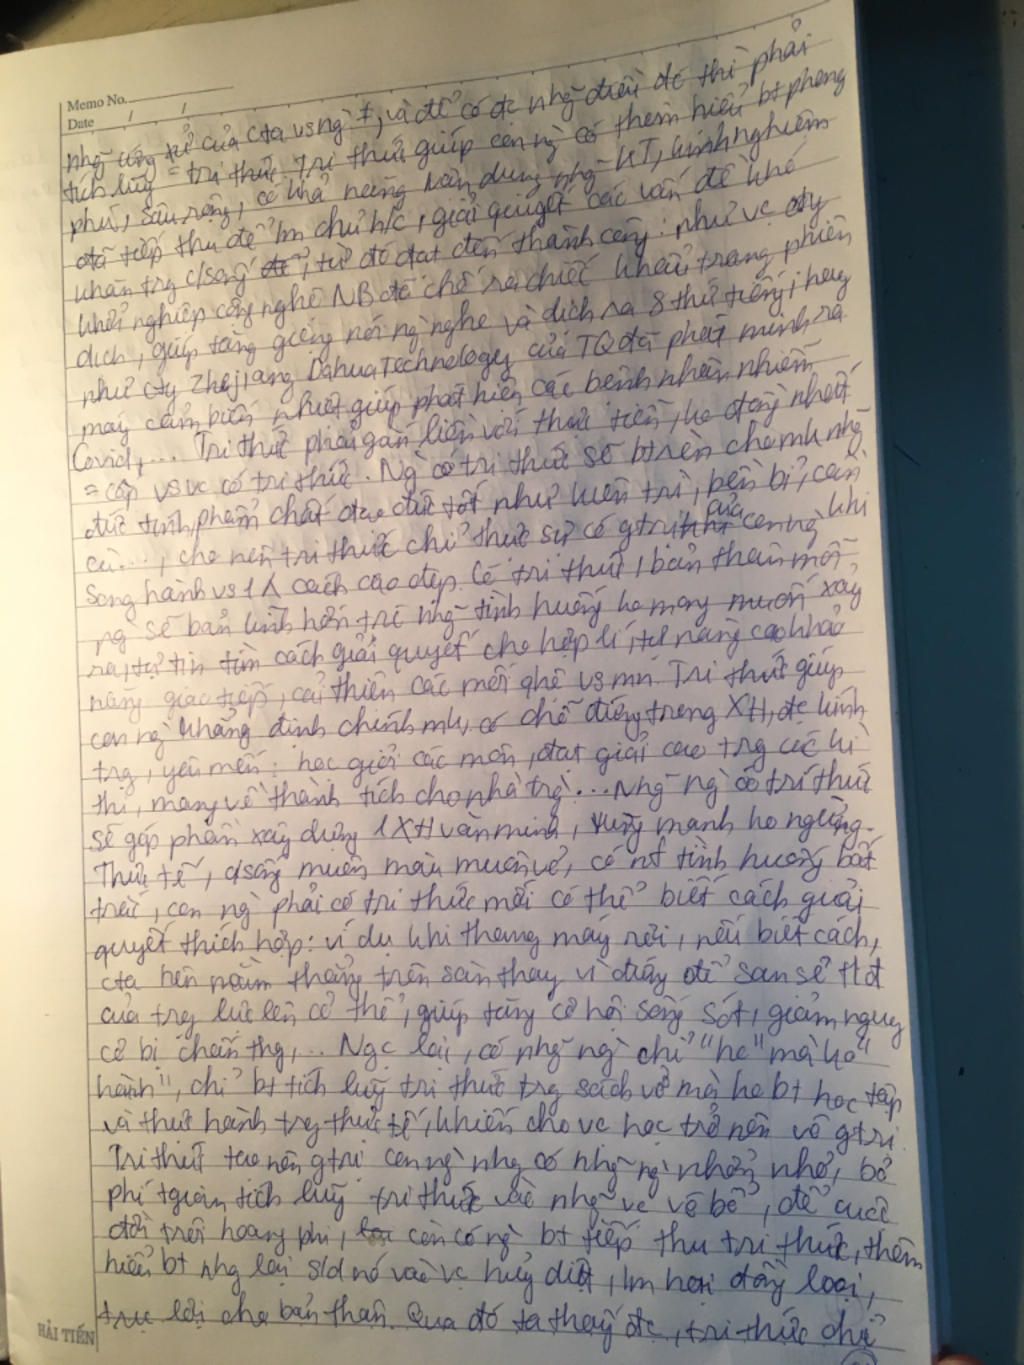 Memo No.
Date / /
nhg~ ứng xử của cta vs ng` ≠, và để có đc nhg~ điều đó thì phải
tích luỹ = tri thức. Tri thức giúp con ng` có thêm hiểu bt phong
phú, sâu rộng, có khả năng vận dụng nhg~ KT, kinh nghiệm
đã tiếp thu để lm chủ h/c, giải quyết các vấn đề khó
khăn trg c/sống, từ đó đạt đến thành công: như vc cty
khởi nghiệp công nghệ NB đã chế ra chiếc khẩu trang phiên
dịch, giúp tăng giọng nói ng` nghe và dịch ra 8 thứ tiếng; hay
như cty Zhejiang Dahua Technology của TQ đã phát minh ra
máy cảm biến nhiệt giúp phát hiện các bệnh nhân nhiễm
Covid,... Tri thức phải gắn liền với thực tiễn, ko đồng nhất
= cấp vs vc có tri thức. Ng` có tri thức sẽ bt rèn cho mk nhg~
đức tính, phẩm chất đạo đức tốt như kiên trì, bền bỉ, cần
cù..., cho nên tri thức chỉ thực sự có gtri của con ng` khi
song hành vs 1 cách cao đẹp. Có tri thức, bản thân mỗi
ng sẽ bản lĩnh hơn trc nhg~ tình huống ko mong muốn xảy
ra, tự tin tìm cách giải quyết cho hợp lí, từ nâng cao khả
năng giao tiếp, cải thiện các mối qhệ vs mn. Tri thức giúp
con ng` khẳng định chính mk, có chỗ đứng trong XH, đc kính
trg, yêu mến: học giỏi các môn, đạt giải cao trg các kì
thi, mang về thành tích cho nhà trg`... Nhg~ ng` có tri thức
sẽ góp phần xây dựng 1 XH văn minh, vững mạnh ko ngừng.
Thực tế, c/sống muôn màu muôn vẻ, có n` tình huống bất
trắc, con ng` phải có tri thức mới có thể biết cách giải
quyết thích hợp: ví dụ khi thang máy rơi, nếu biết cách,
cta nên nằm thẳng trên sàn thay vì đứng để san sẻ
của trg lực lên cơ thể, giúp tăng cơ hội sống sót, giảm nguy
cơ bị chấn thg,... Ngc lại, có nhg~ ng` chỉ "họ" mà ko "
hành", chỉ bt tích luỹ tri thức trg sách vở mà ko bt học tập
và thực hành trg thực tế, khiến cho vc học trở nên vô gtri.
Tri thức tạo nên gtri con ng` nhg có nhg~ ng` nhởn nhơ, bỏ
phí tgian tích luỹ tri thức vào nhg~ vc vô bổ, để cuộc
đời trôi hoang phí, còn có ng` bt tiếp thu tri thức, thêm
hiểu bt nhg lại s/d nó vào vc huỷ diệt, lm hại đồng loại,
trục lợi cho bản thân. Qua đó ta thấy đc, tri thức chỉ
HẢI TIẾN